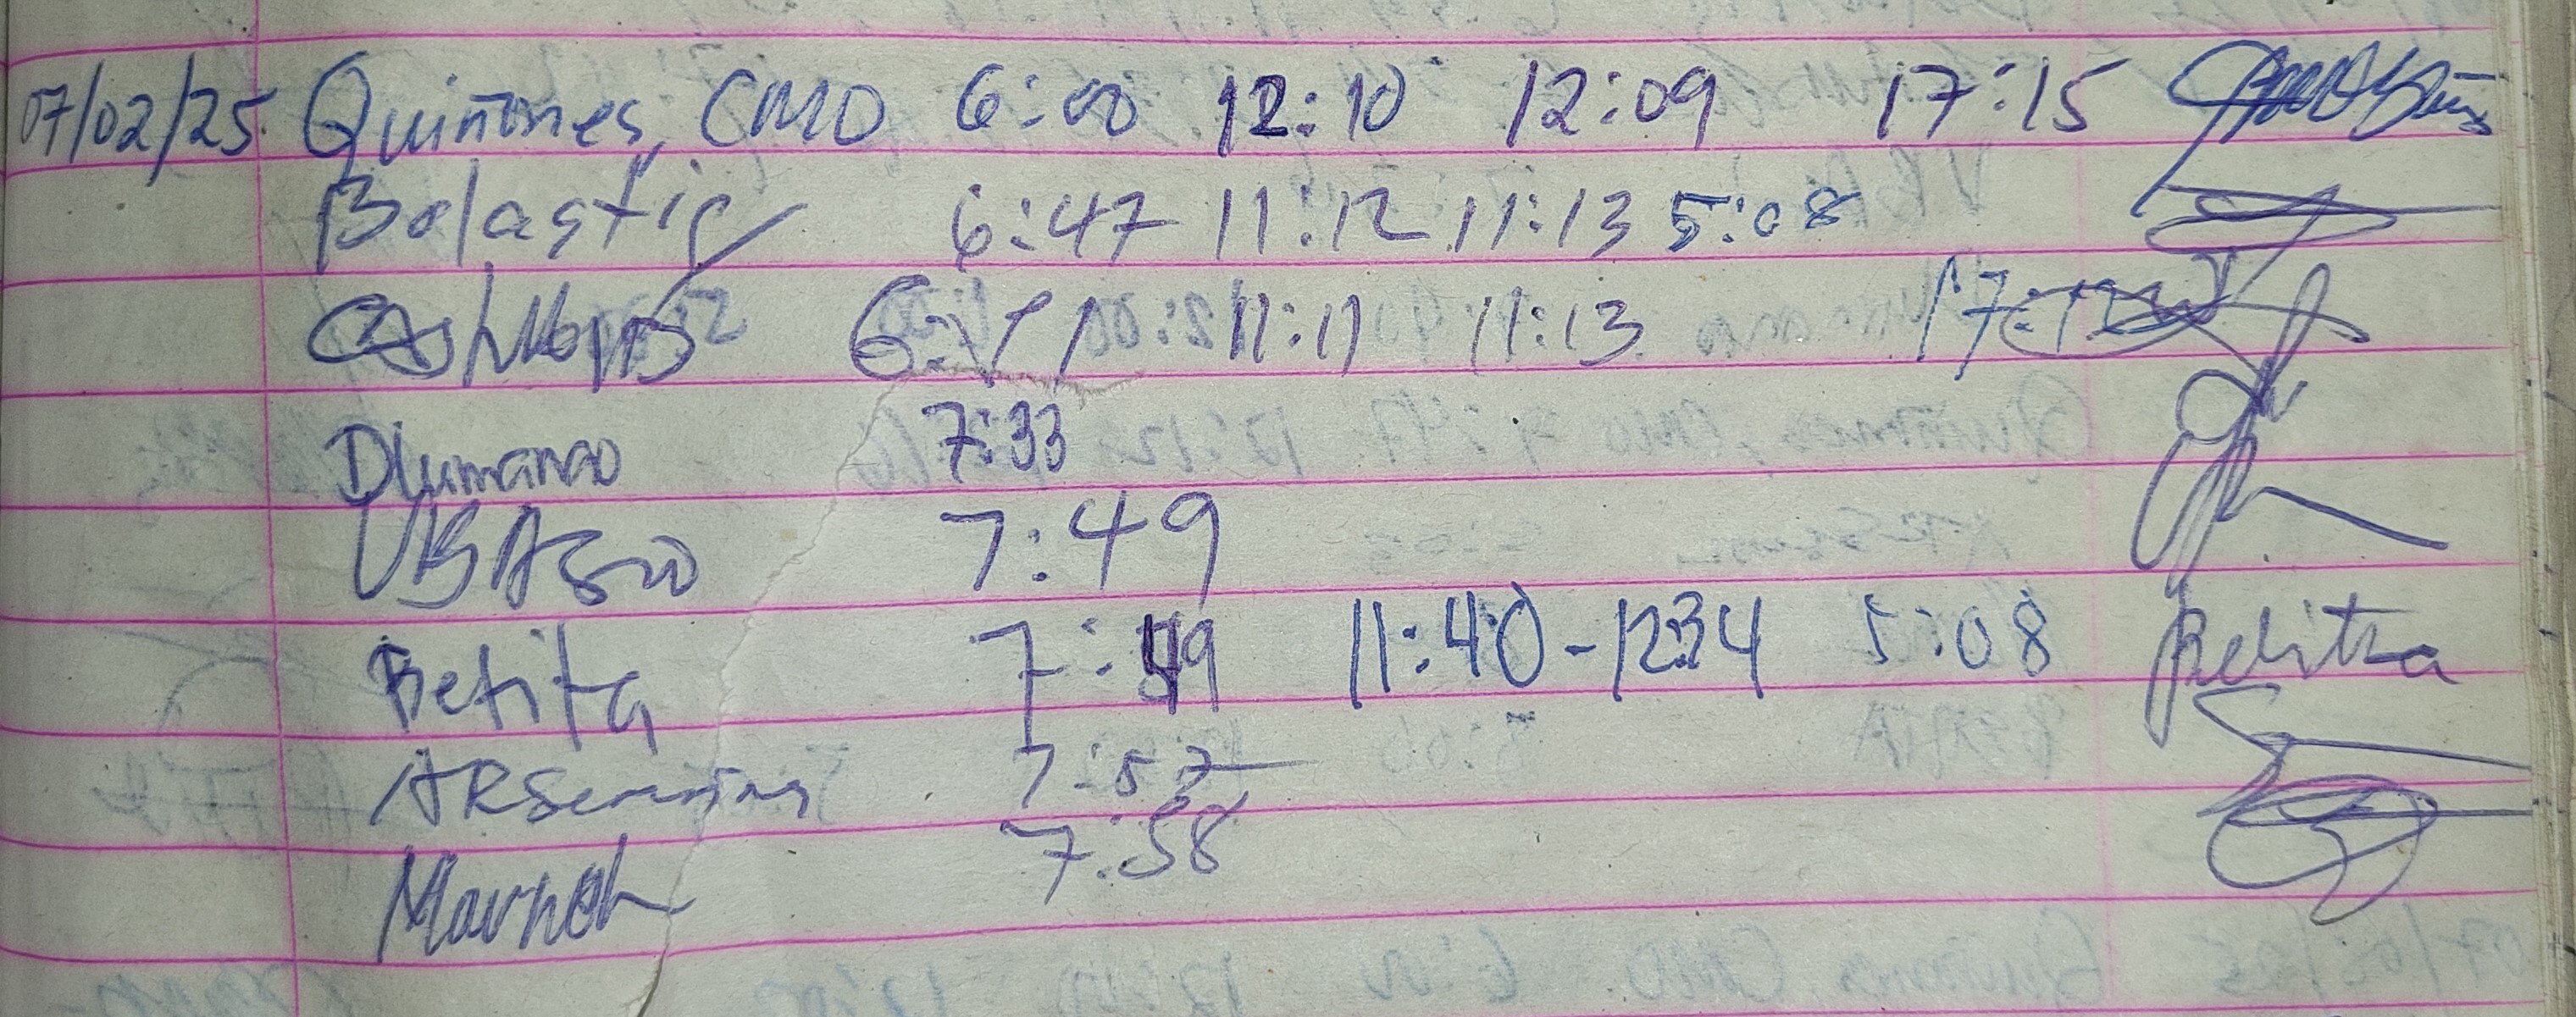 07/02/25 Quiñones, CMO 6:00 12:10 12:09 17:15
Bolastig 6:47 11:12 11:13 5:08
11:11 11:13
Dlumanao 7:33
7:49
Betita 7:49 11:40-12:34 5:08 Betita
ARSenina 7:57
7:58